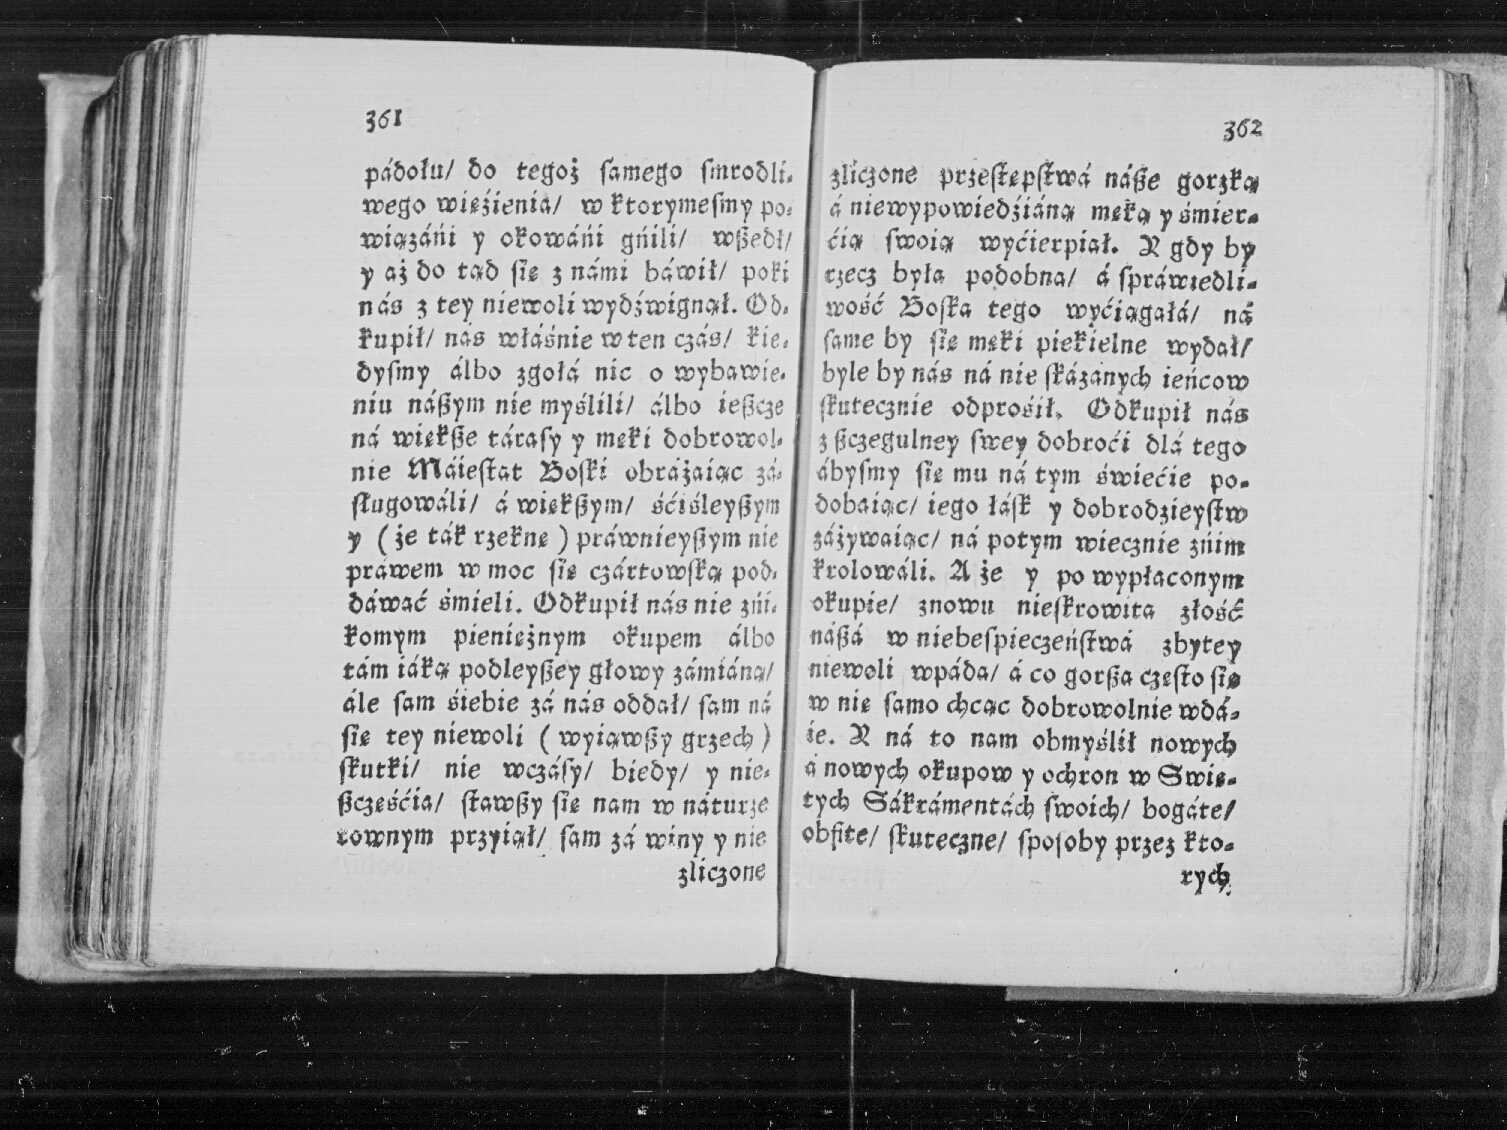 361
pádołu/ do tegoż ſamego ſmrodli-
wego więźienia/ w ktorymeſmy po-
wiązáńi y okowáńi gńili/ wßedł/
y aż do tąd ſię z námi báwił/ poki
nás z tey niewoli wydźwignął. Od-
kupił/ nás właśnie w ten czás/ kie-
dyſmy álbo zgołá nic o wybawie-
niu náßym nie myślili/ álbo ießcze
ná większe tárasy y męki dobrowol-
nie Máieſtat Boſki obrażaiąc zá-
ſługowáli/ á więkßym/ śćiśleyßym
y (że ták rzeknę) práwnieyßym nie
práwem w moc ſię czártowſką pod-
dáwáć śmieli. Odkupił nás nie zńi-
komym pieniężnym okupem álbo
tám iáką podleyßey głowy zámiáną/
ále ſam śiebie zá nás oddał/ ſam ná
ſię tey niewoli (wyiąwßy grzech)
ſkutki/ nie wczásy/ biedy/ y nie-
ßczęśćia/ ſtawßy ſię nam w náturze
rownym przyiął/ ſam zá winy y nie
zliczone
362
zliczone przeſtępſtwá náße gorzką
á niewypowiedźiáną męką y śmier-
ćią ſwoią wyćierpiał. Y gdy by
rzecz była podobna/ á ſpráwiedli-
wość Boſka tego wyćiągałá/ ná
ſame by ſię męki piekielne wydał/
byle by nás ná nie ſkázánych ieńcow
ſkutecznie odprośił. Odkupił nás
z ßczegulney ſwey dobroći dlá tego
ábyſmy ſię mu ná tym świećie po-
dobaiąc/ iego łáſk y dobrodzieyſtw
záżywaiąc/ ná potym wiecznie zńim
krolowáli. A że y po wypłaconym
okupie/ znowu nieſkrowita złość
náßá w niebeſpieczeńſtwá zbytey
niewoli wpáda/ á co gorßa często ſię
w nię ſamo chcąc dobrowolnie wdá-
ie. Y ná to nam obmyślił nowych
á nowych okupow y ochron w Swię-
tych Sákrámentách ſwoich/ bogáte/
obfite/ ſkuteczne/ ſpoſoby przez kto-
rych